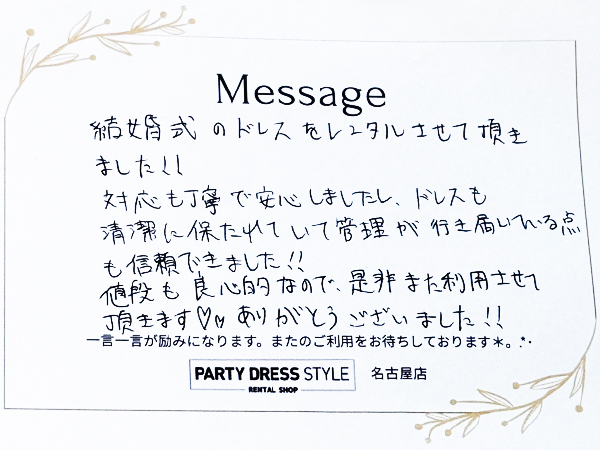 Message
結婚式のドレスをレンタルさせて頂き
ました!!
対応も丁寧で安心しましたし、ドレスも
清潔に保たれていて管理が行き届いている点
も信頼できました!!
値段も良心的なので、是非また利用させて
頂きます♡♡ありがとうございました!!
一言一言が励みになります。またのご利用をお待ちしております*。.*･
PARTY DRESS STYLE 名古屋店
RENTAL SHOP